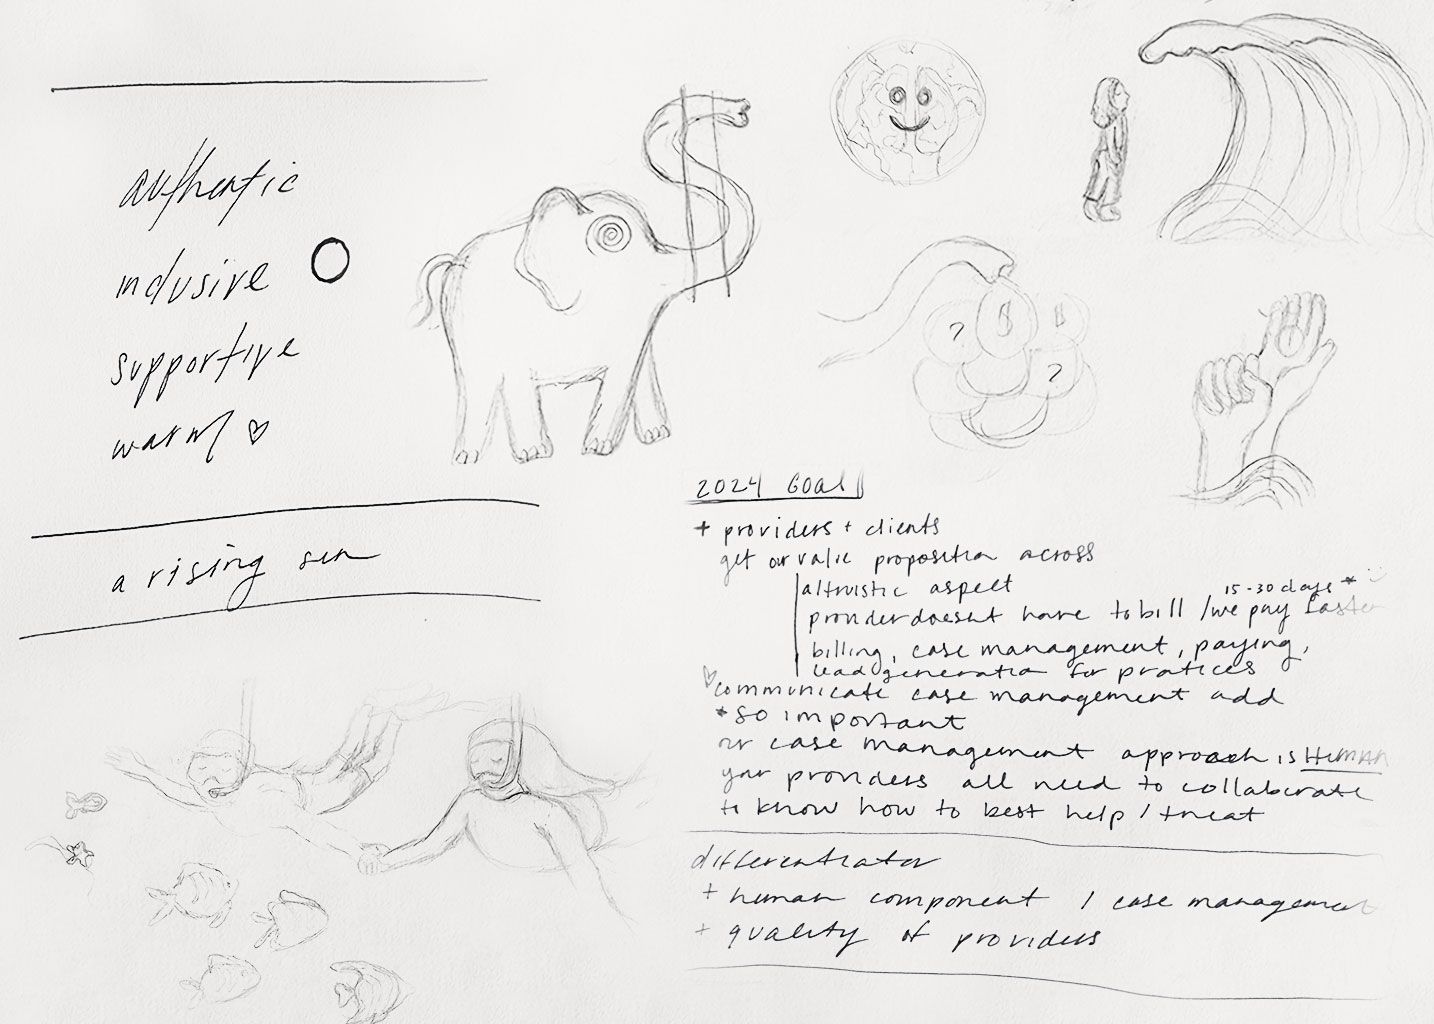 authentic
inclusive
supportive
warm ♡
a rising sun
? $
?
2024 Goal
+ providers + clients
get our value proposition across
altruistic aspect
15-30 days *
provider doesn't have to bill / we pay faster
billing, case management, paying,
lead generation for pratices
♡ communicate case management add
* so important
our case management approach is HUMAN
your providers all need to collaborate
to know how to best help / treat
differentiator
+ human component / case management
+ quality of providers